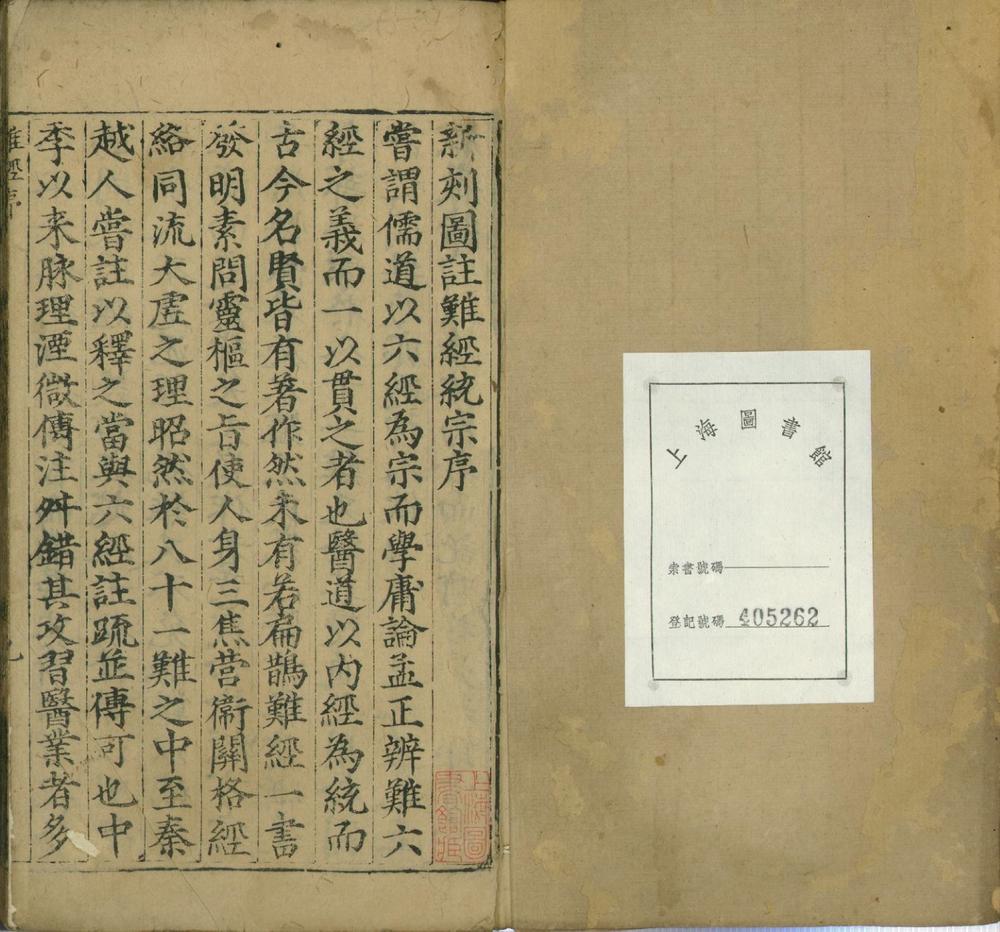 上海圖書館
索書號碼
登記號碼 405262
新刻圖註難經統宗序
嘗謂儒道以六經為宗而學庸論孟正辨難六
經之義而一以貫之者也醫道以內經為統而
古今名賢皆有著作然未有若扁鵲難經一書
發明素問靈樞之旨使人身三焦營衛關格經
絡同流大虛之理昭然於八十一難之中至秦
越人嘗註以釋之當與六經註疏並傳可也中
季以来脉理湮微傳注舛錯其攻習醫業者多
難經序
上海圖書館藏